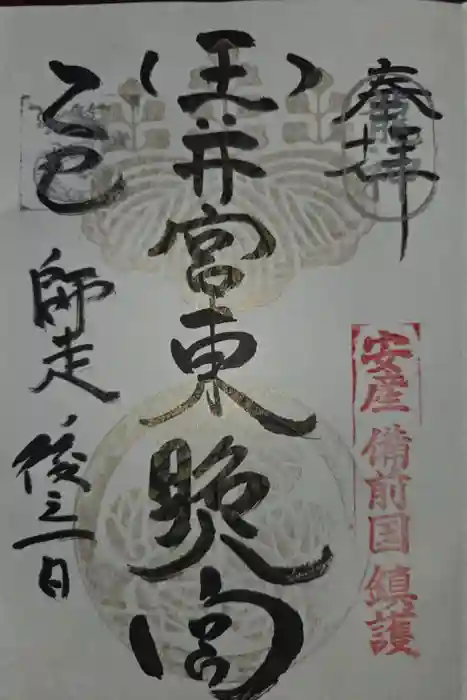 奉拝
安産 備前国 鎮護
玉井宮東照宮
乙巳
師走 後三日